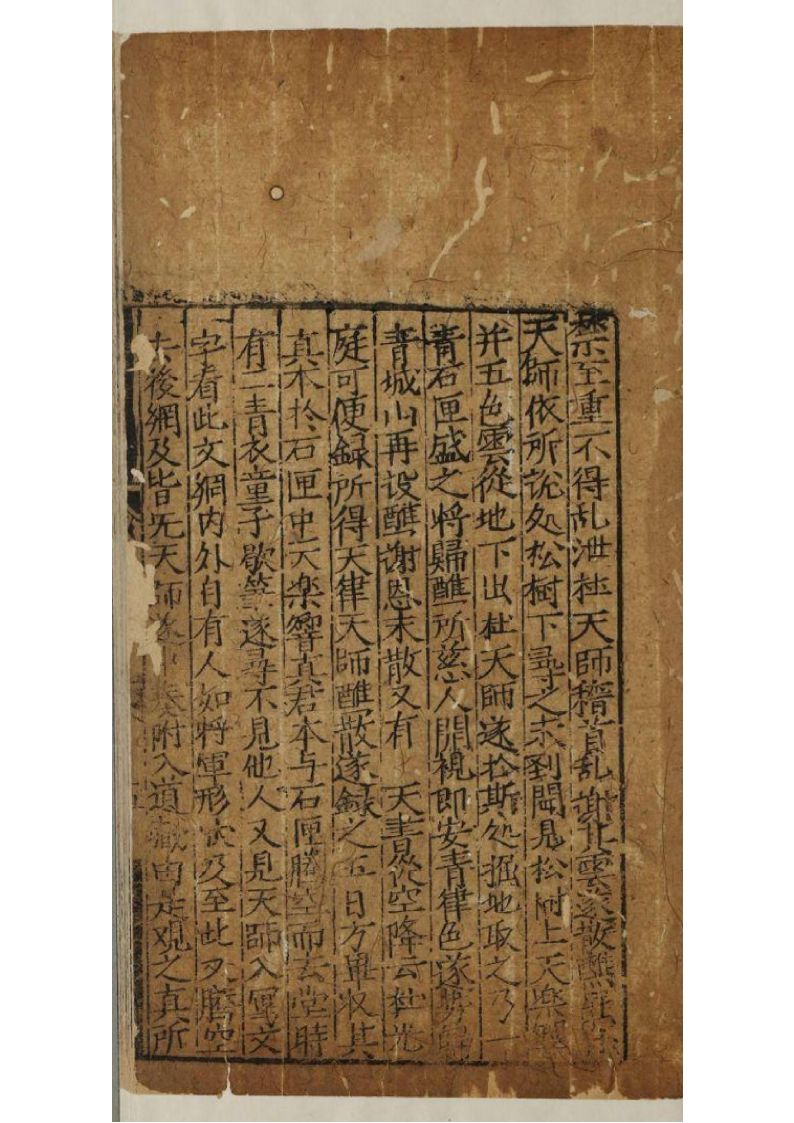 禁至重不得乱泄杜天師稽首乱謝此雲遂散醮
天師依所說处松樹下尋之未到聞見松树上天楽
并五色雲從地下出杜天師遂扵斯处掘地取之乃一
青石匣盛之将歸醮所慈人開視即安青律色遂
青城山再设醮谢恩未散又有天書從空降云杜光
庭可使録所得天律天師醮散遂録之五日方畢收其
真本扵石匣中天楽響真君本与石匣騰空而去堂時
有二青衣童子歇筆遂尋不見他人又見天師入冥文
字看此文網内外自有人如将軍形容及至此又騰空
去後網及皆无天師遂附入道藏由是观之真所